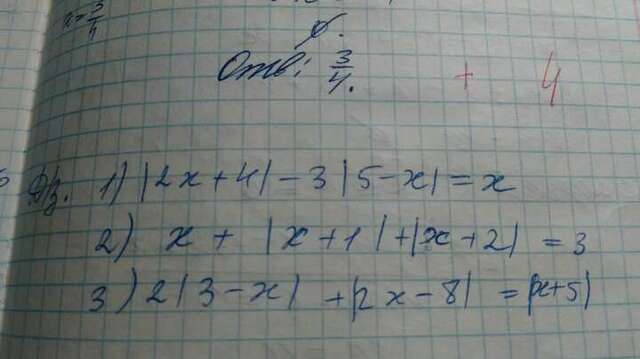 x = 3/4
Отв: 3/4.
+ 4
Д/з. 1) |2x+4| - 3|5-x| = x
2) x + |x+1| + |x+2| = 3
3) 2|3-x| + |2x-8| = |x+5|